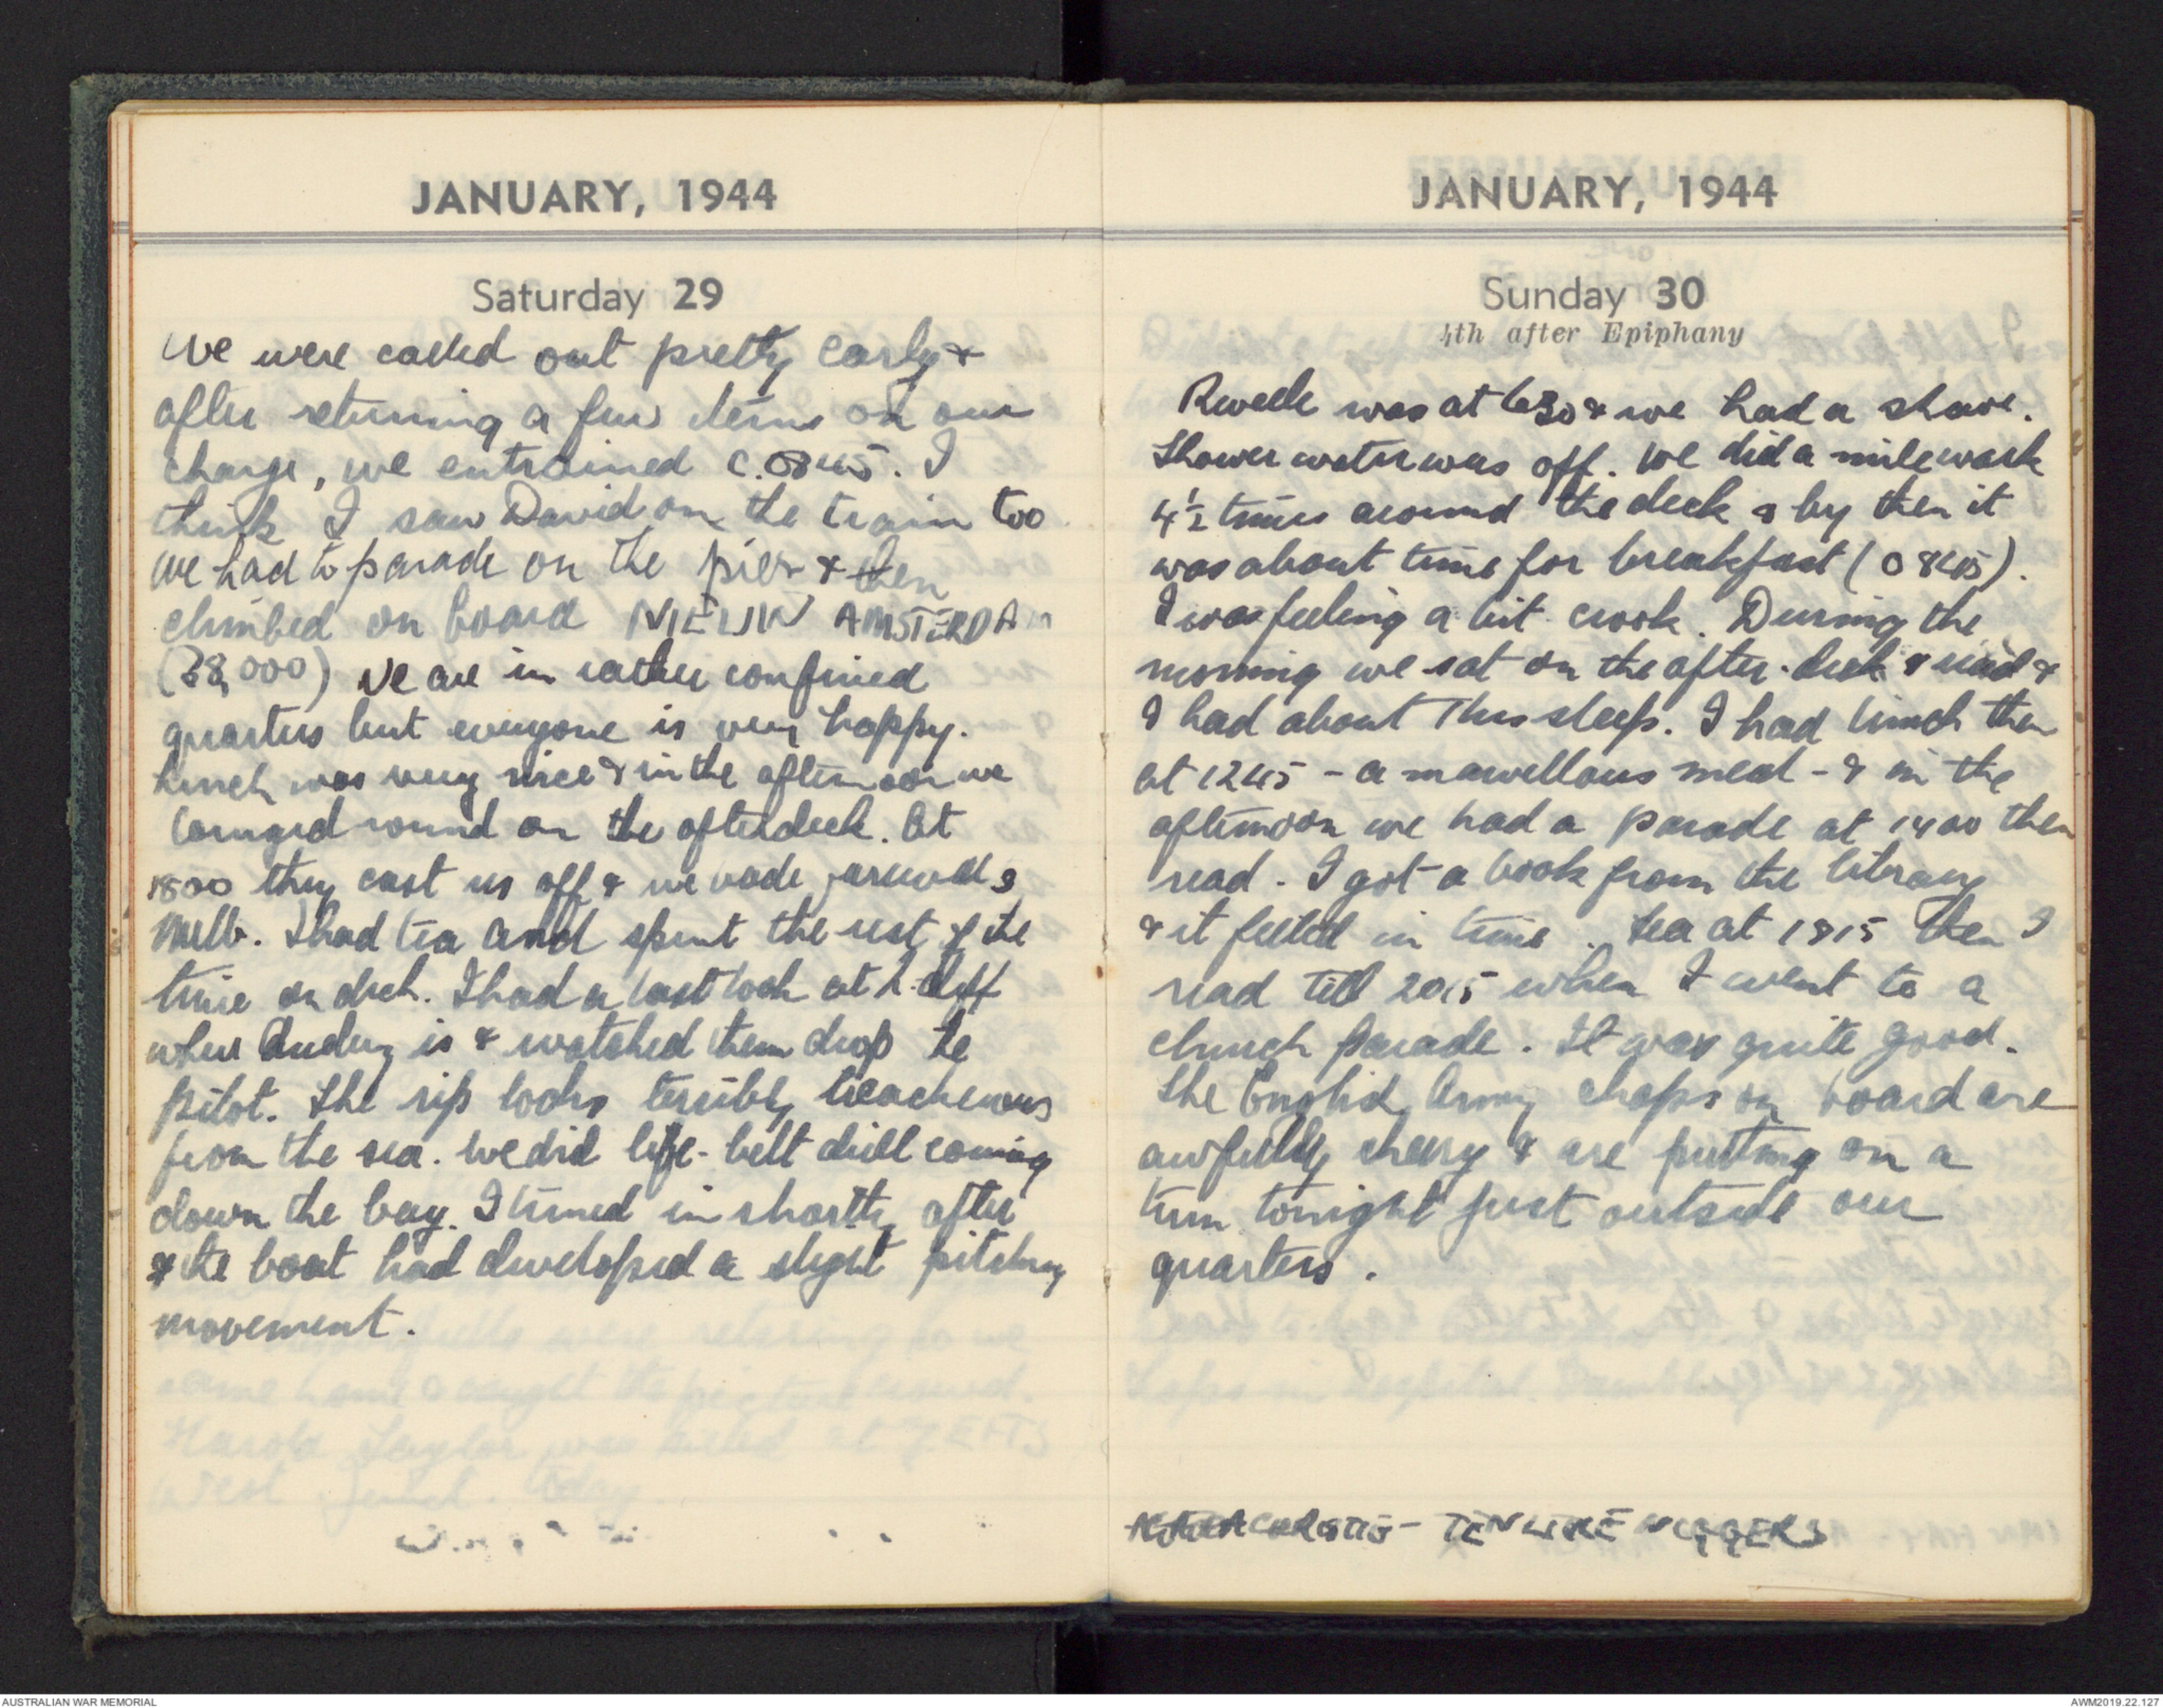 JANUARY, 1944
Saturday 29
We were called out pretty early &
after returning a few items on our
charge, we entrained c. 0845. I
think I saw David on the train too
We had to parade on the pier & then
climbed on board NIEUW AMSTERDAM
(38,000) We are in rather confined
quarters but everyone is very happy.
Lunch was very nice & in the afternoon we
lounged round on the afterdeck. At
1800 they cast us off & we bade farewell to
Melb. I had tea and spent the rest of the
time on deck. I had a last look at
where Audrey is & watched them drop the
pilot. The rip looks terribly treacherous
from the sea. We did life-belt drill coming
down the bay. I turned in shortly after
& the boat had developed a slight pitching
movement.
JANUARY, 1944
Sunday 30
4th after Epiphany
Reveille was at 630 & we had a shave.
Shower water was off. We did a mile walk
4½ times around the deck & by then it
was about time for breakfast (0845).
I was feeling a bit crook. During the
morning we sat on the after-deck & read &
I had about 1 hrs sleep. I had lunch then
at 1245 - a marvellous meal - & in the
afternoon we had a parade at 1400 then
read. I got a book from the library
& it filled in time. Tea at 1815 then I
read till 2015 when I went to a
church parade. It was quite good.
The English Army chaps on board are
awfully cheery & are putting on a
turn tonight just outside our
quarters.
AGATHA CHRISTIE - TEN LITTLE NIGGERS
AUSTRALIAN WAR MEMORIAL
AWM2019.22.127